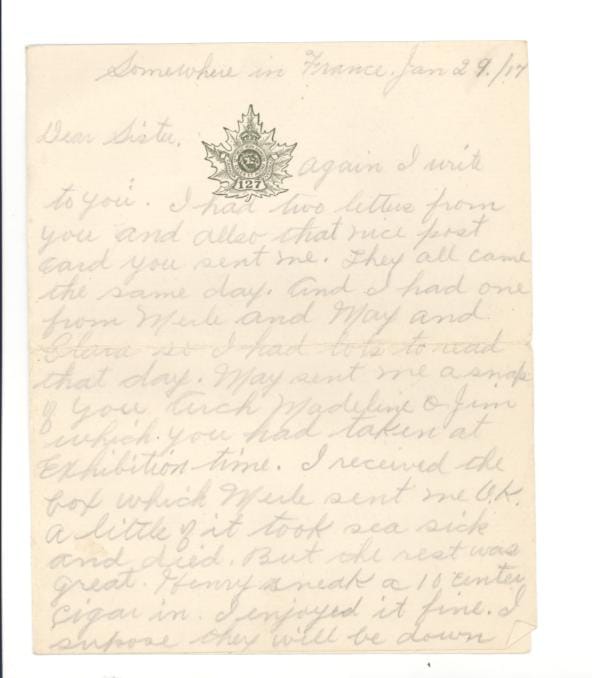 Somewhere in France. Jan 29./17
Dear Sister,
127
again I write
to you. I had two letters from
you and allso that nice post
card you sent me. They all came
the same day. And I had one
from Merle and May and
Clara so I had lots to read
that day. May sent me a snap
of you Arch Madeline & Jim
which you had taken at
Exhibition time. I received the
box which Merle sent me O.K.
a little of it took sea sick
and died. But the rest was
great. Henry sneak a 10 center
cigar in. I enjoyed it fine. I
supose they will be down